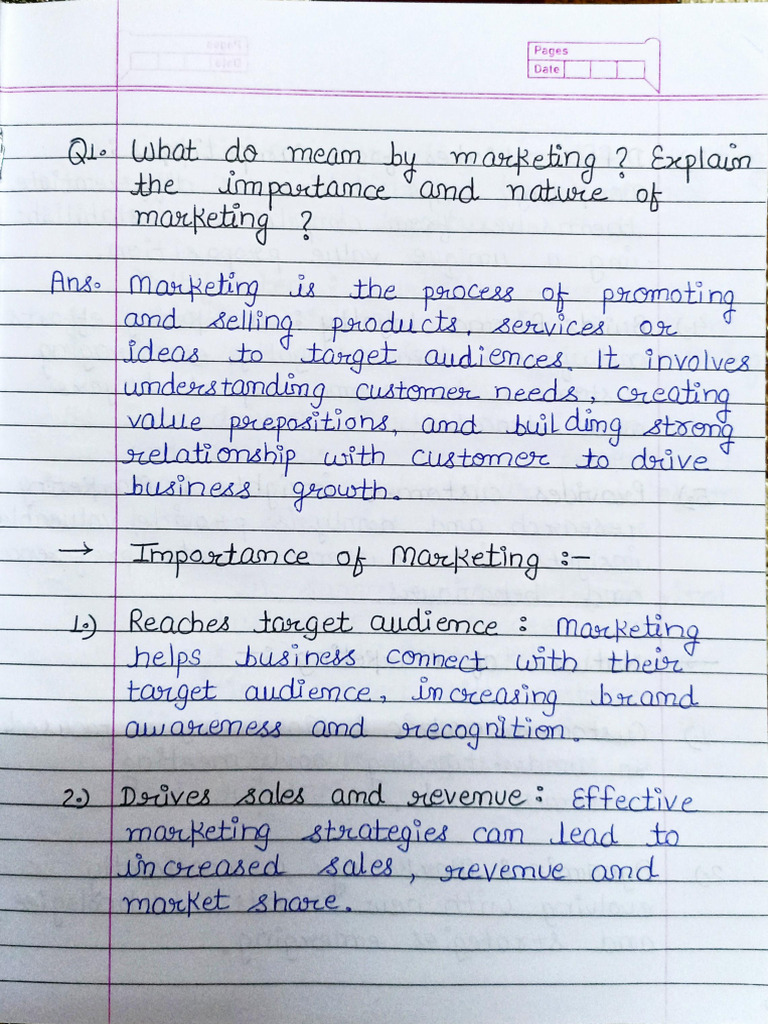 Pages
Date
Q1. What do mean by marketing? Explain
the importance and nature of
marketing?
Ans. Marketing is the process of promoting
and selling products, services or
ideas to target audiences. It involves
understanding customer needs, creating
value prepositions, and building strong
relationship with customer to drive
business growth.
→ Importance of Marketing :-
1.) Reaches target audience : Marketing
helps business connect with their
target audience, increasing brand
awareness and recognition.
2.) Drives sales and revenue : Effective
marketing strategies can lead to
increased sales, revenue and
market share.